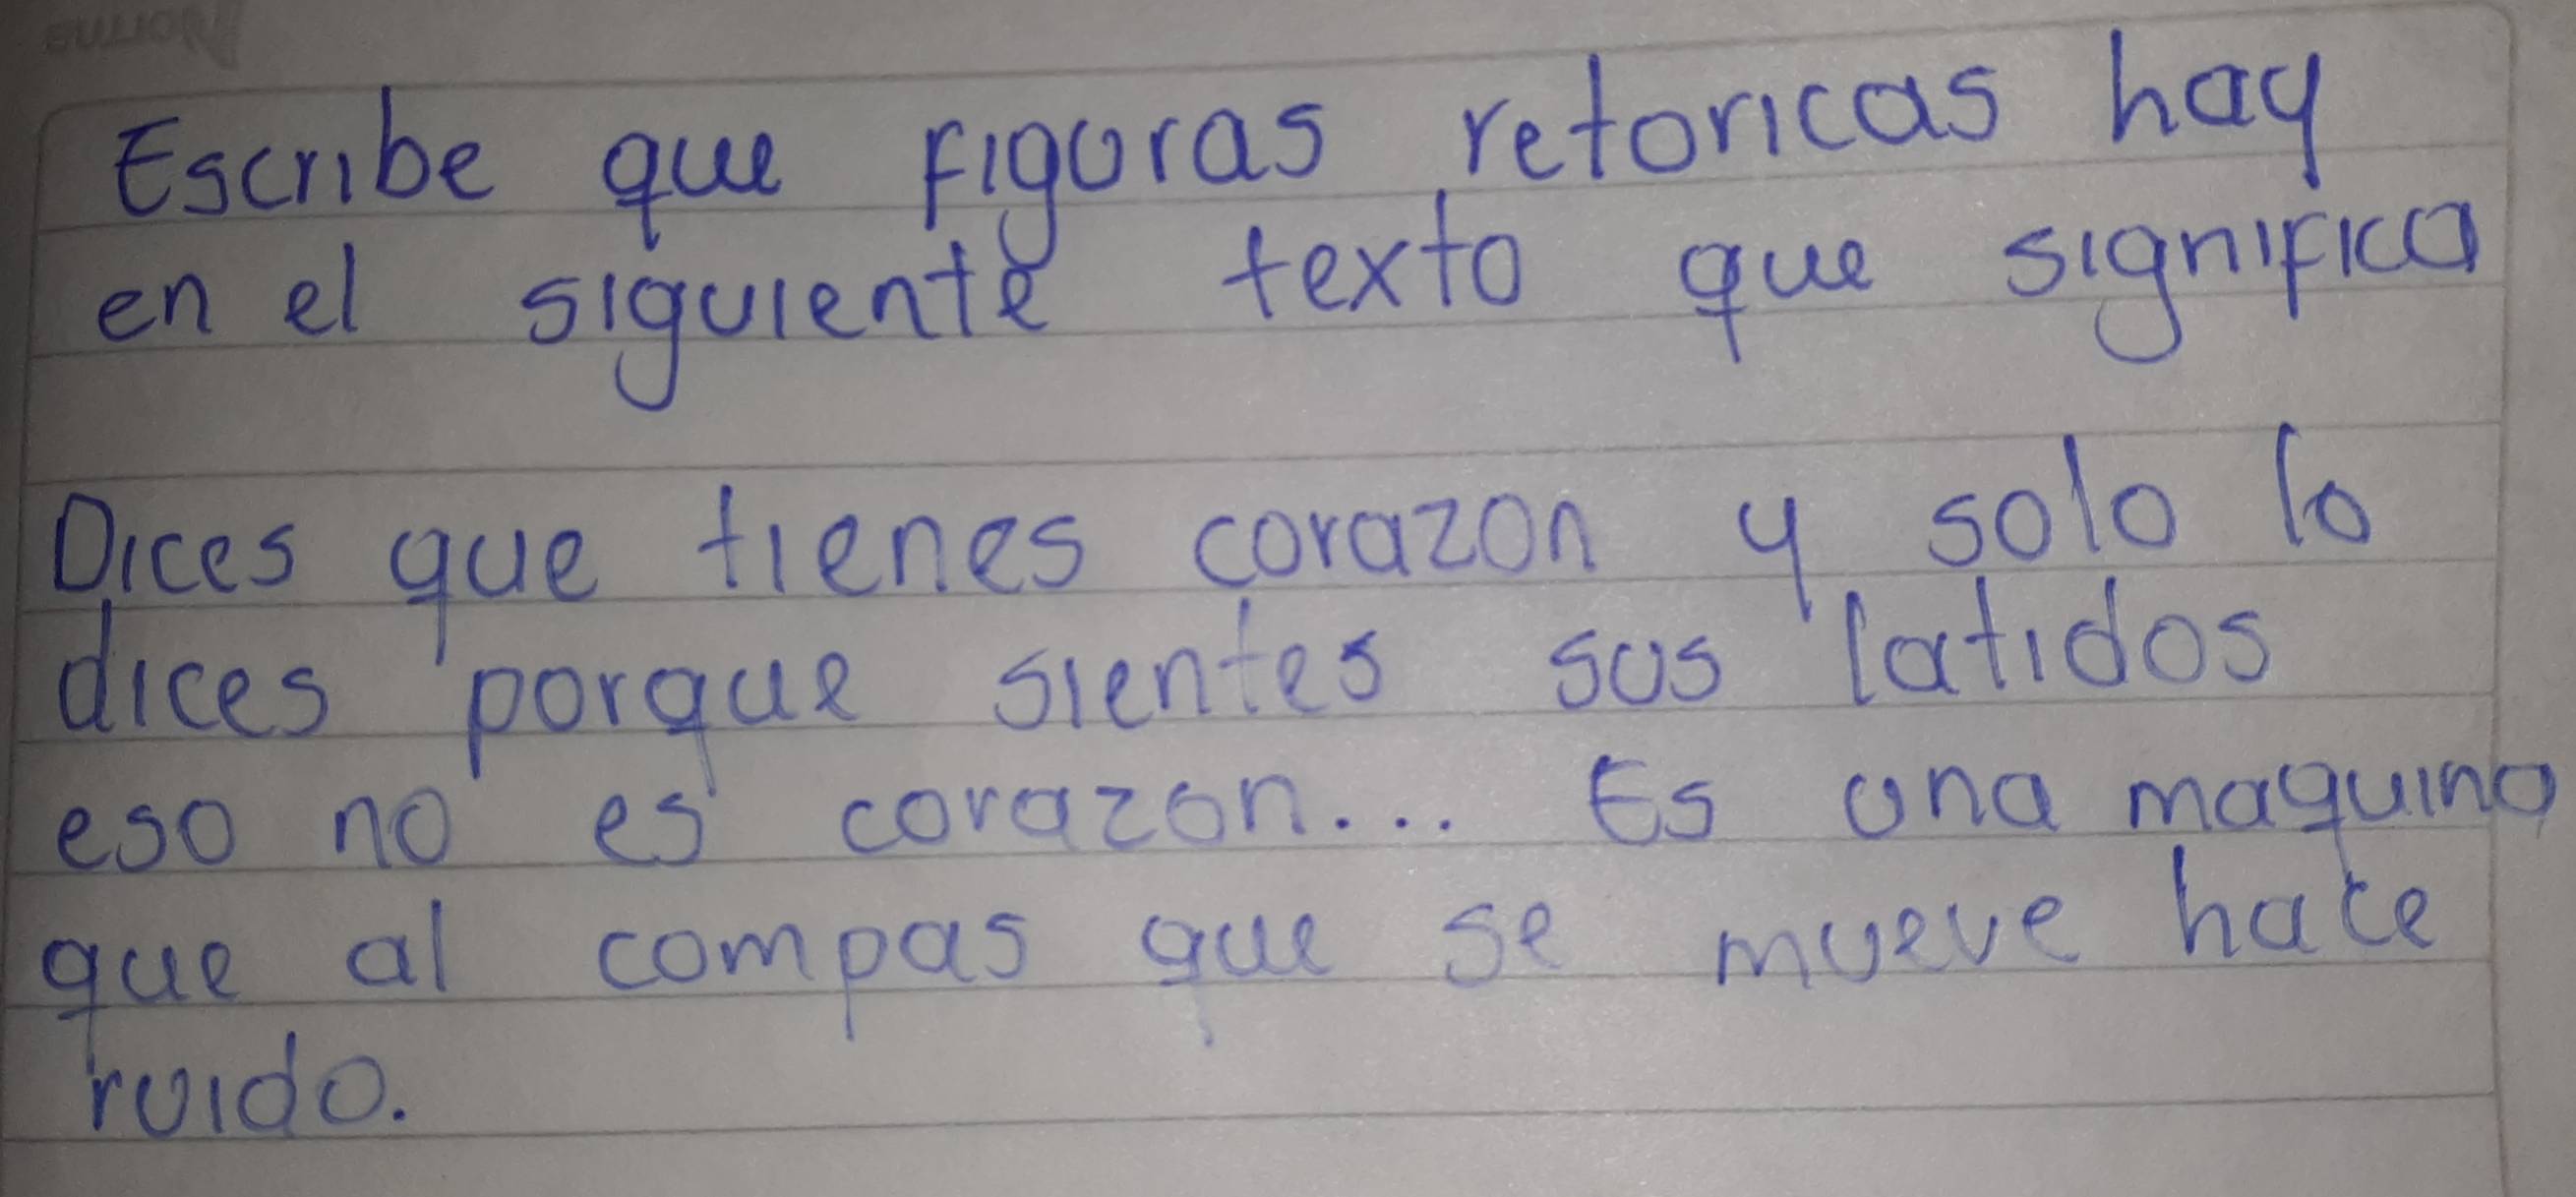 Escribe que figuras retoricas hay
en el siguiente texto que significa
Dices que tienes corazon y solo lo
dices porque sientes sus latidos
eso no es corazon... Es una maquina
que al compas que se mueve hace
ruido.